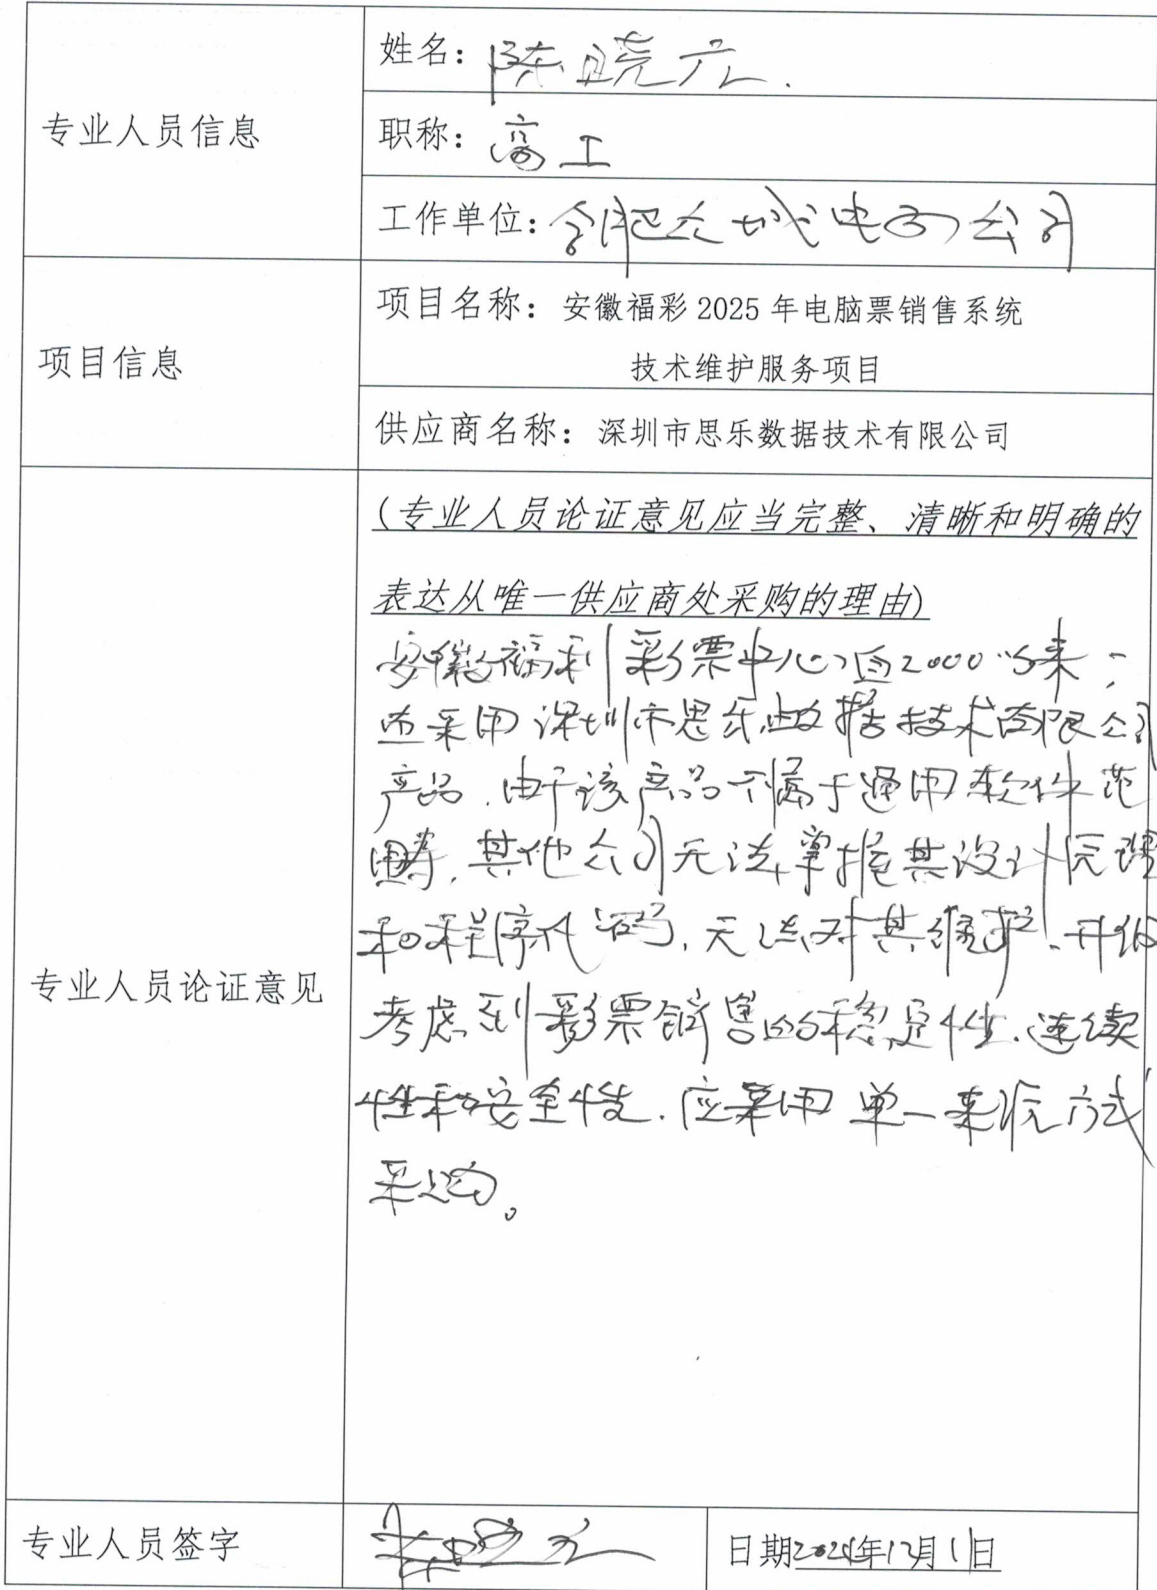 专业人员信息
姓名：陈晓广.
职称：高工
工作单位：合肥众城电子公司
项目信息
项目名称：安徽福彩 2025 年电脑票销售系统
技术维护服务项目
供应商名称：深圳市思乐数据技术有限公司
专业人员论证意见
(专业人员论证意见应当完整、清晰和明确的
表达从唯一供应商处采购的理由)
安徽福利彩票中心自2000以来，
一直采用深圳市思乐数据技术有限公司
产品.由于该产品不属于通用软件范
畴,其他公司无法掌握其设计原理
和程序代码,无法对其维护、升级
考虑到彩票销售的稳定性、连续
性和安全性.应采用单一来源方式
采购。
专业人员签字
日期2024年12月1日